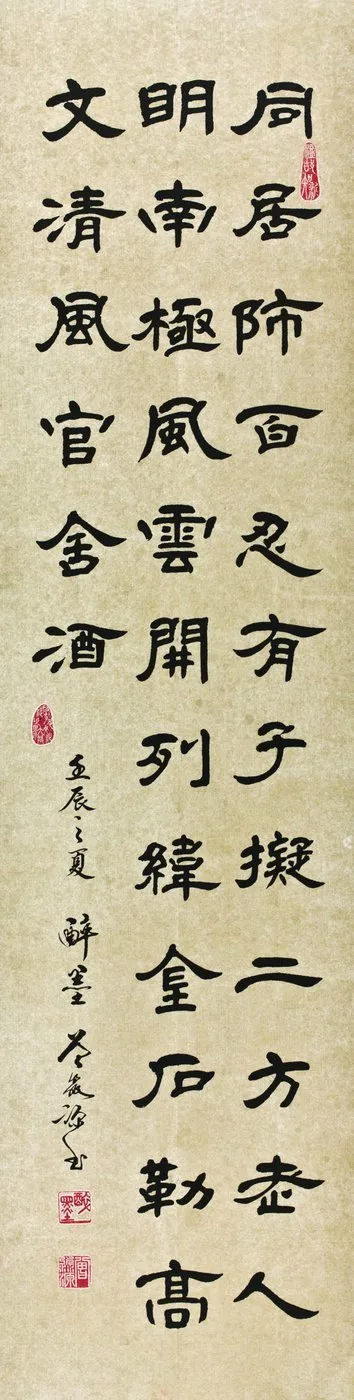 同居師百忍有子擬二方老人
明南極風雲開列緯金石勒高
文清風官舍酒
壬辰之夏 醉墨 書
醉墨